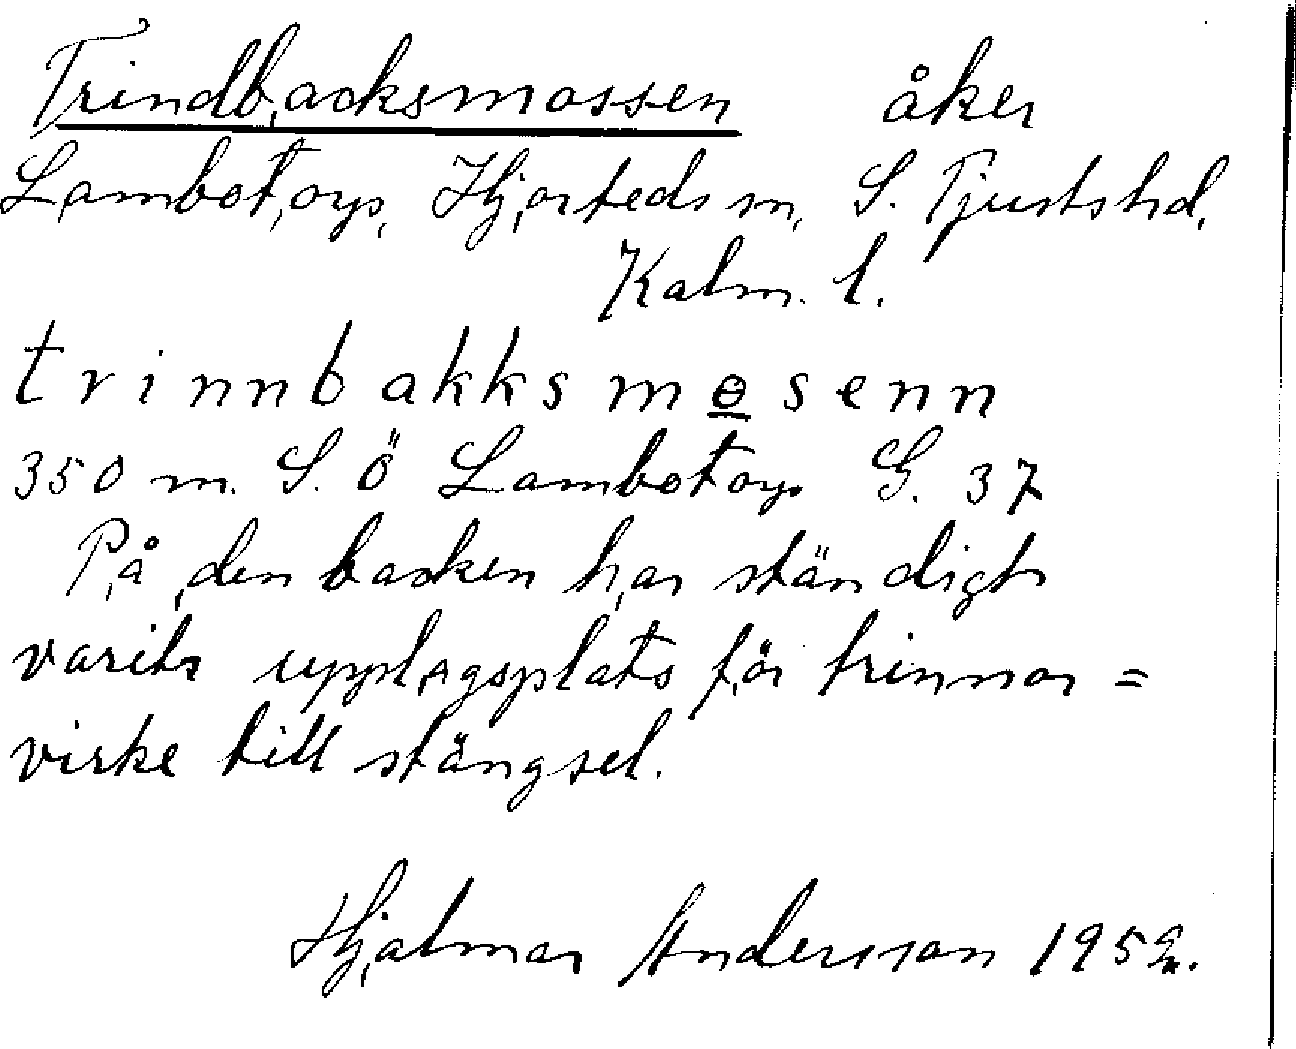 Trindbacksmossen åker
Lambotorp, Hjorteds sn, S. Tjusts hd,
Kalm. l.
trinnbakksmɵsenn
350 m. S. Ö Lambotorp G. 37
På den backen har ständigt
varit upplagsplats för trinnor=
virke till stängsel.
Hjalmar Andersson 1952.